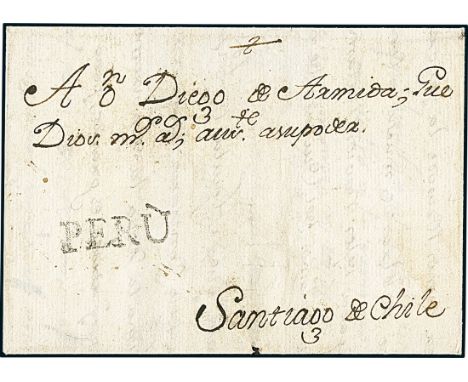 A Dn Diego de Armida; Gue
Dios ms as; aus. asupoder.
PERÙ
Santiago de Chile